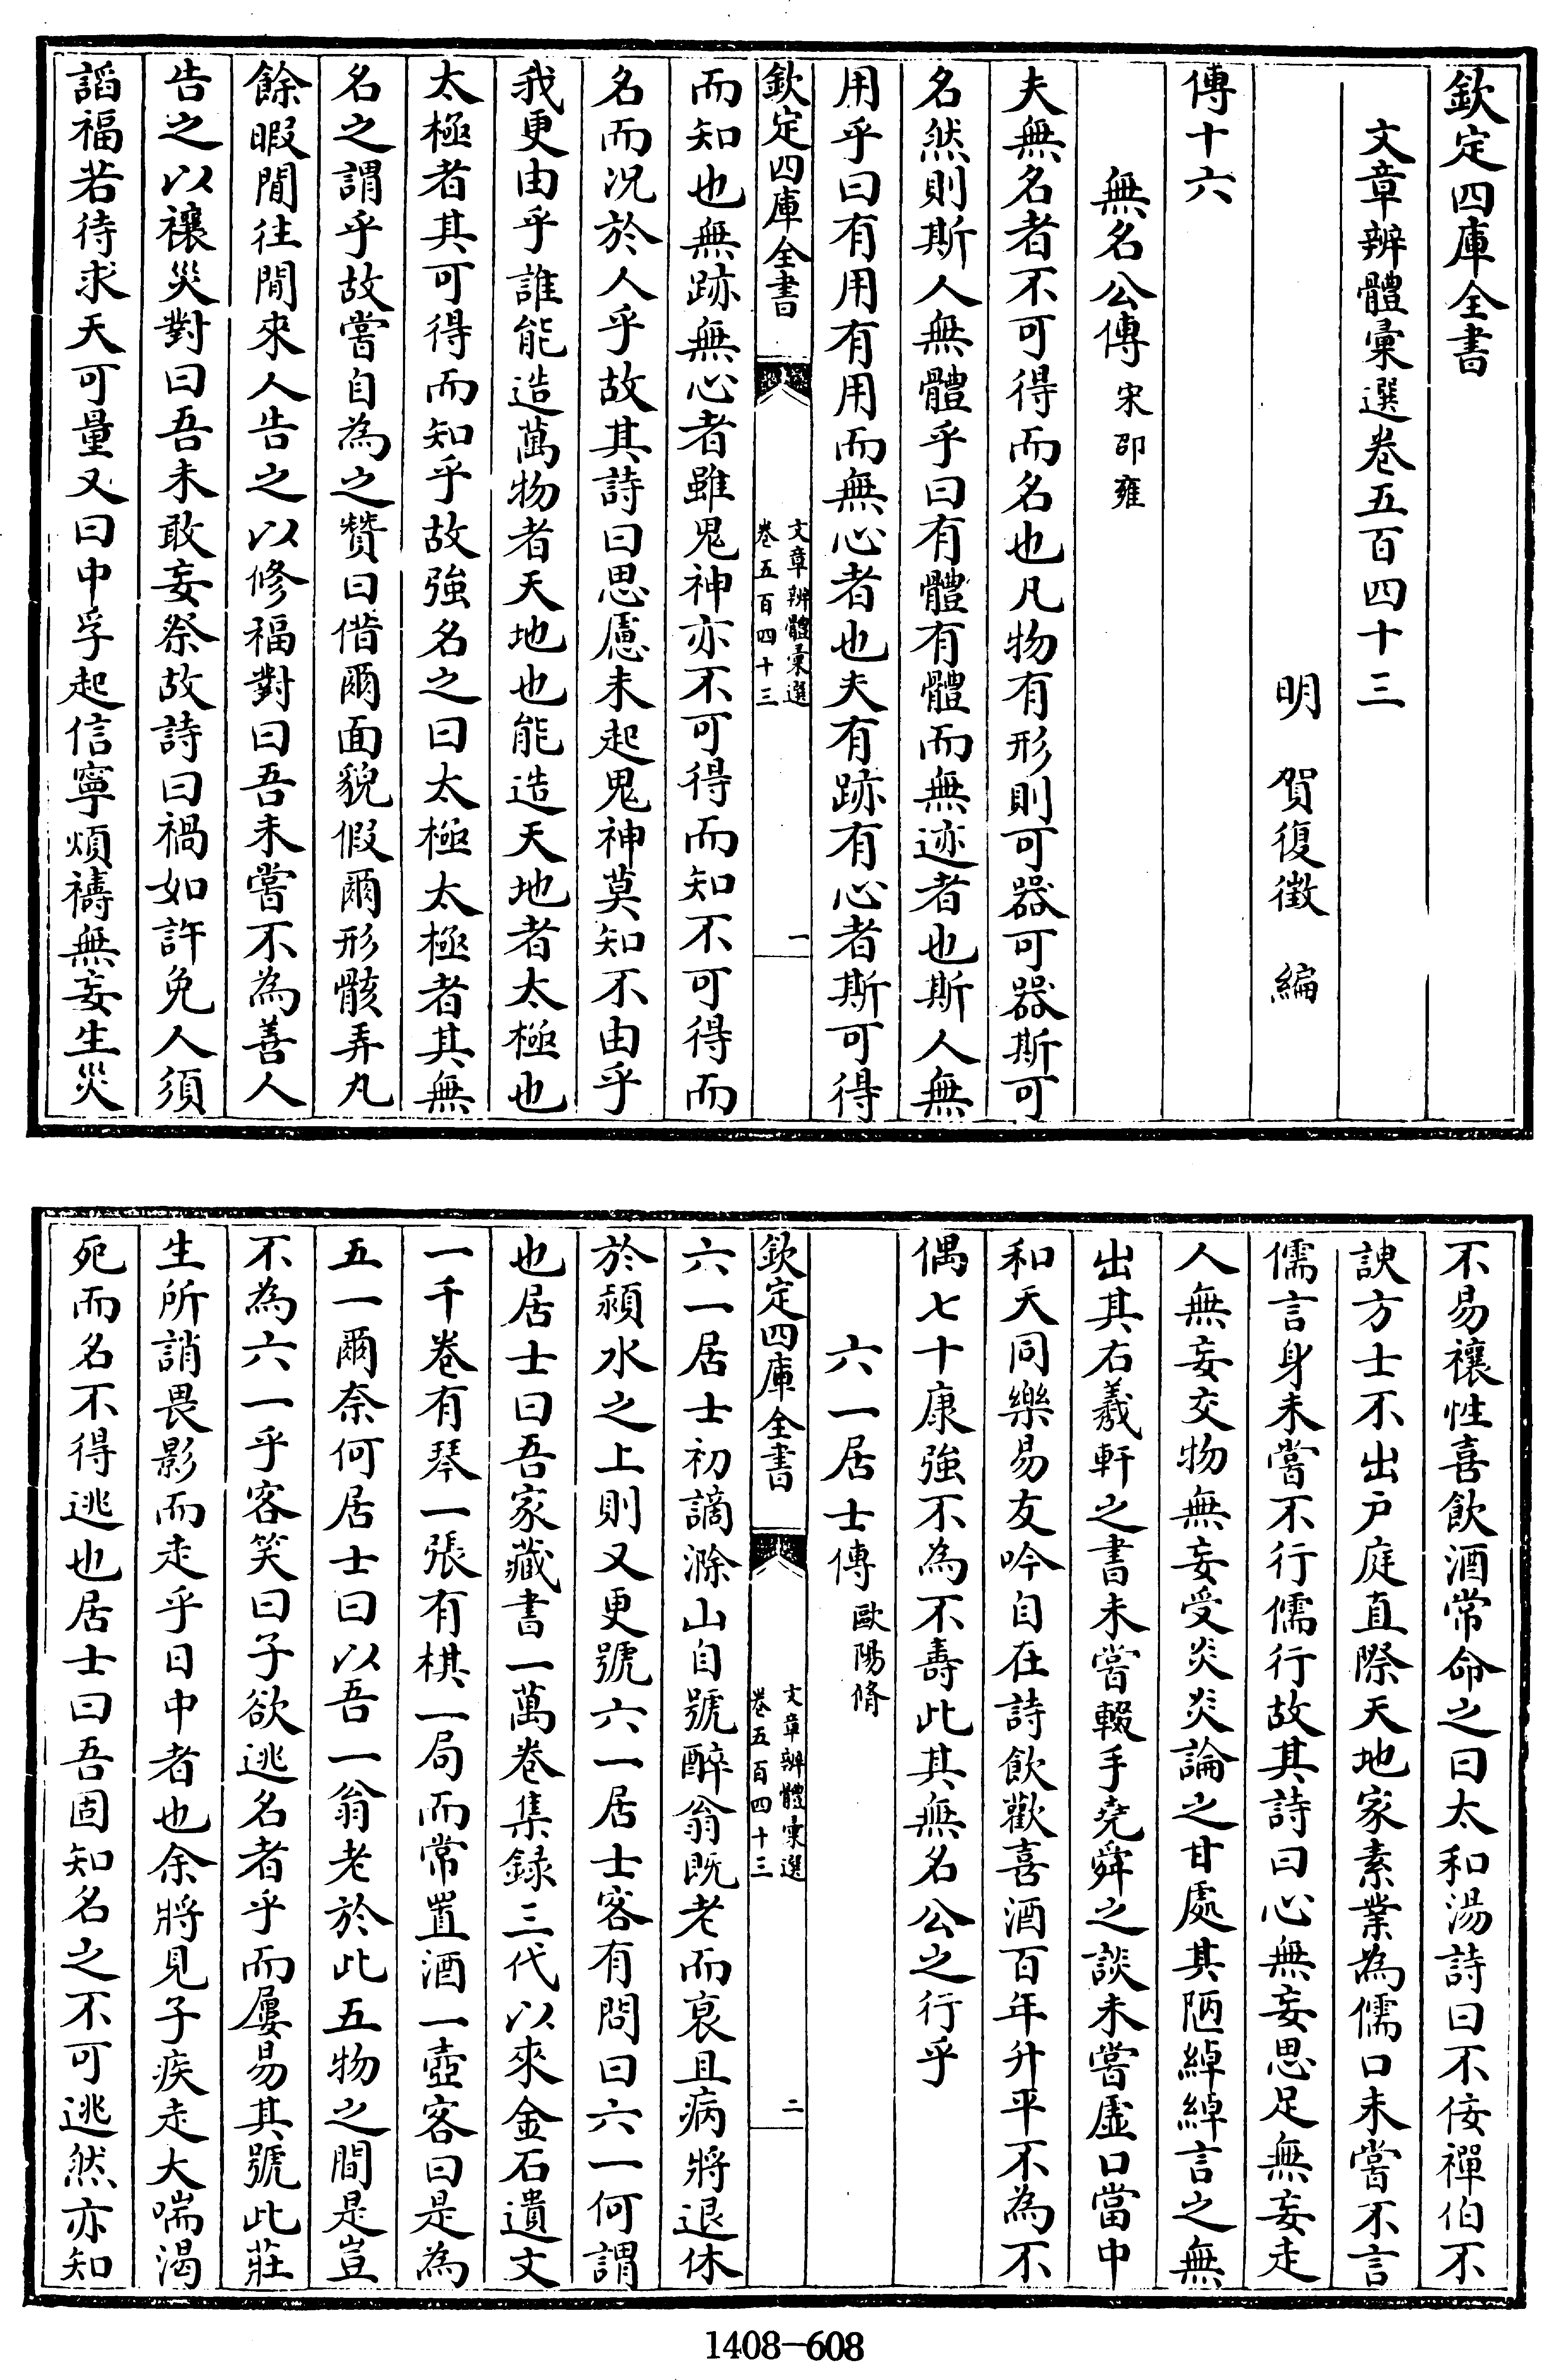 欽定四庫全書
文章辨體彙選卷五百四十三
明 賀復徵 編
傳十六
無名公傳宋邵雍
夫無名者不可得而名也凡物有形則可器可器斯可
名然則斯人無體乎曰有體有體而無迹者也斯人無
用乎曰有用有用而無心者也夫有跡有心者斯可得
欽定四庫全書
文章辨體彙選
卷五百四十三
一
而知也無跡無心者雖鬼神亦不可得而知不可得而
名而况於人乎故其詩曰思慮未起鬼神莫知不由乎
我更由乎誰能造萬物者天地也能造天地者太極也
太極者其可得而知乎故強名之曰太極太極者其無
名之謂乎故嘗自為之贊曰借爾面貌假爾形骸弄丸
餘暇閒往閒來人告之以修福對曰吾未嘗不為善人
告之以禳災對曰吾未敢妄祭故詩曰禍如許免人須
謟福若待求天可量又曰中孚起信寧煩禱無妄生災
不易禳性喜飲酒常命之曰太和湯詩曰不佞禪伯不
諛方士不出户庭直際天地家素業為儒口未嘗不言
儒言身未嘗不行儒行故其詩曰心無妄思足無妄走
人無妄交物無妄受炎炎論之甘處其陋綽綽言之無
出其右羲軒之書未嘗輟手堯舜之談未嘗虛口當中
和天同樂易友吟自在詩飲歡喜酒百年升平不為不
偶七十康強不為不壽此其無名公之行乎
六一居士傳歐陽脩
欽定四庫全書
文章辨體彙選
卷五百四十三
二
六一居士初謫滁山自號醉翁既老而衰且病將退休
於潁水之上則又更號六一居士客有問曰六一何謂
也居士曰吾家藏書一萬卷集録三代以來金石遺文
一千卷有琴一張有棋一局而常置酒一壺客曰是為
五一爾奈何居士曰以吾一翁老於此五物之間是豈
不為六一乎客笑曰子欲逃名者乎而屢易其號此莊
生所誚畏影而走乎日中者也余將見子疾走大喘渴
死而名不得逃也居士曰吾固知名之不可逃然亦知
1408-608